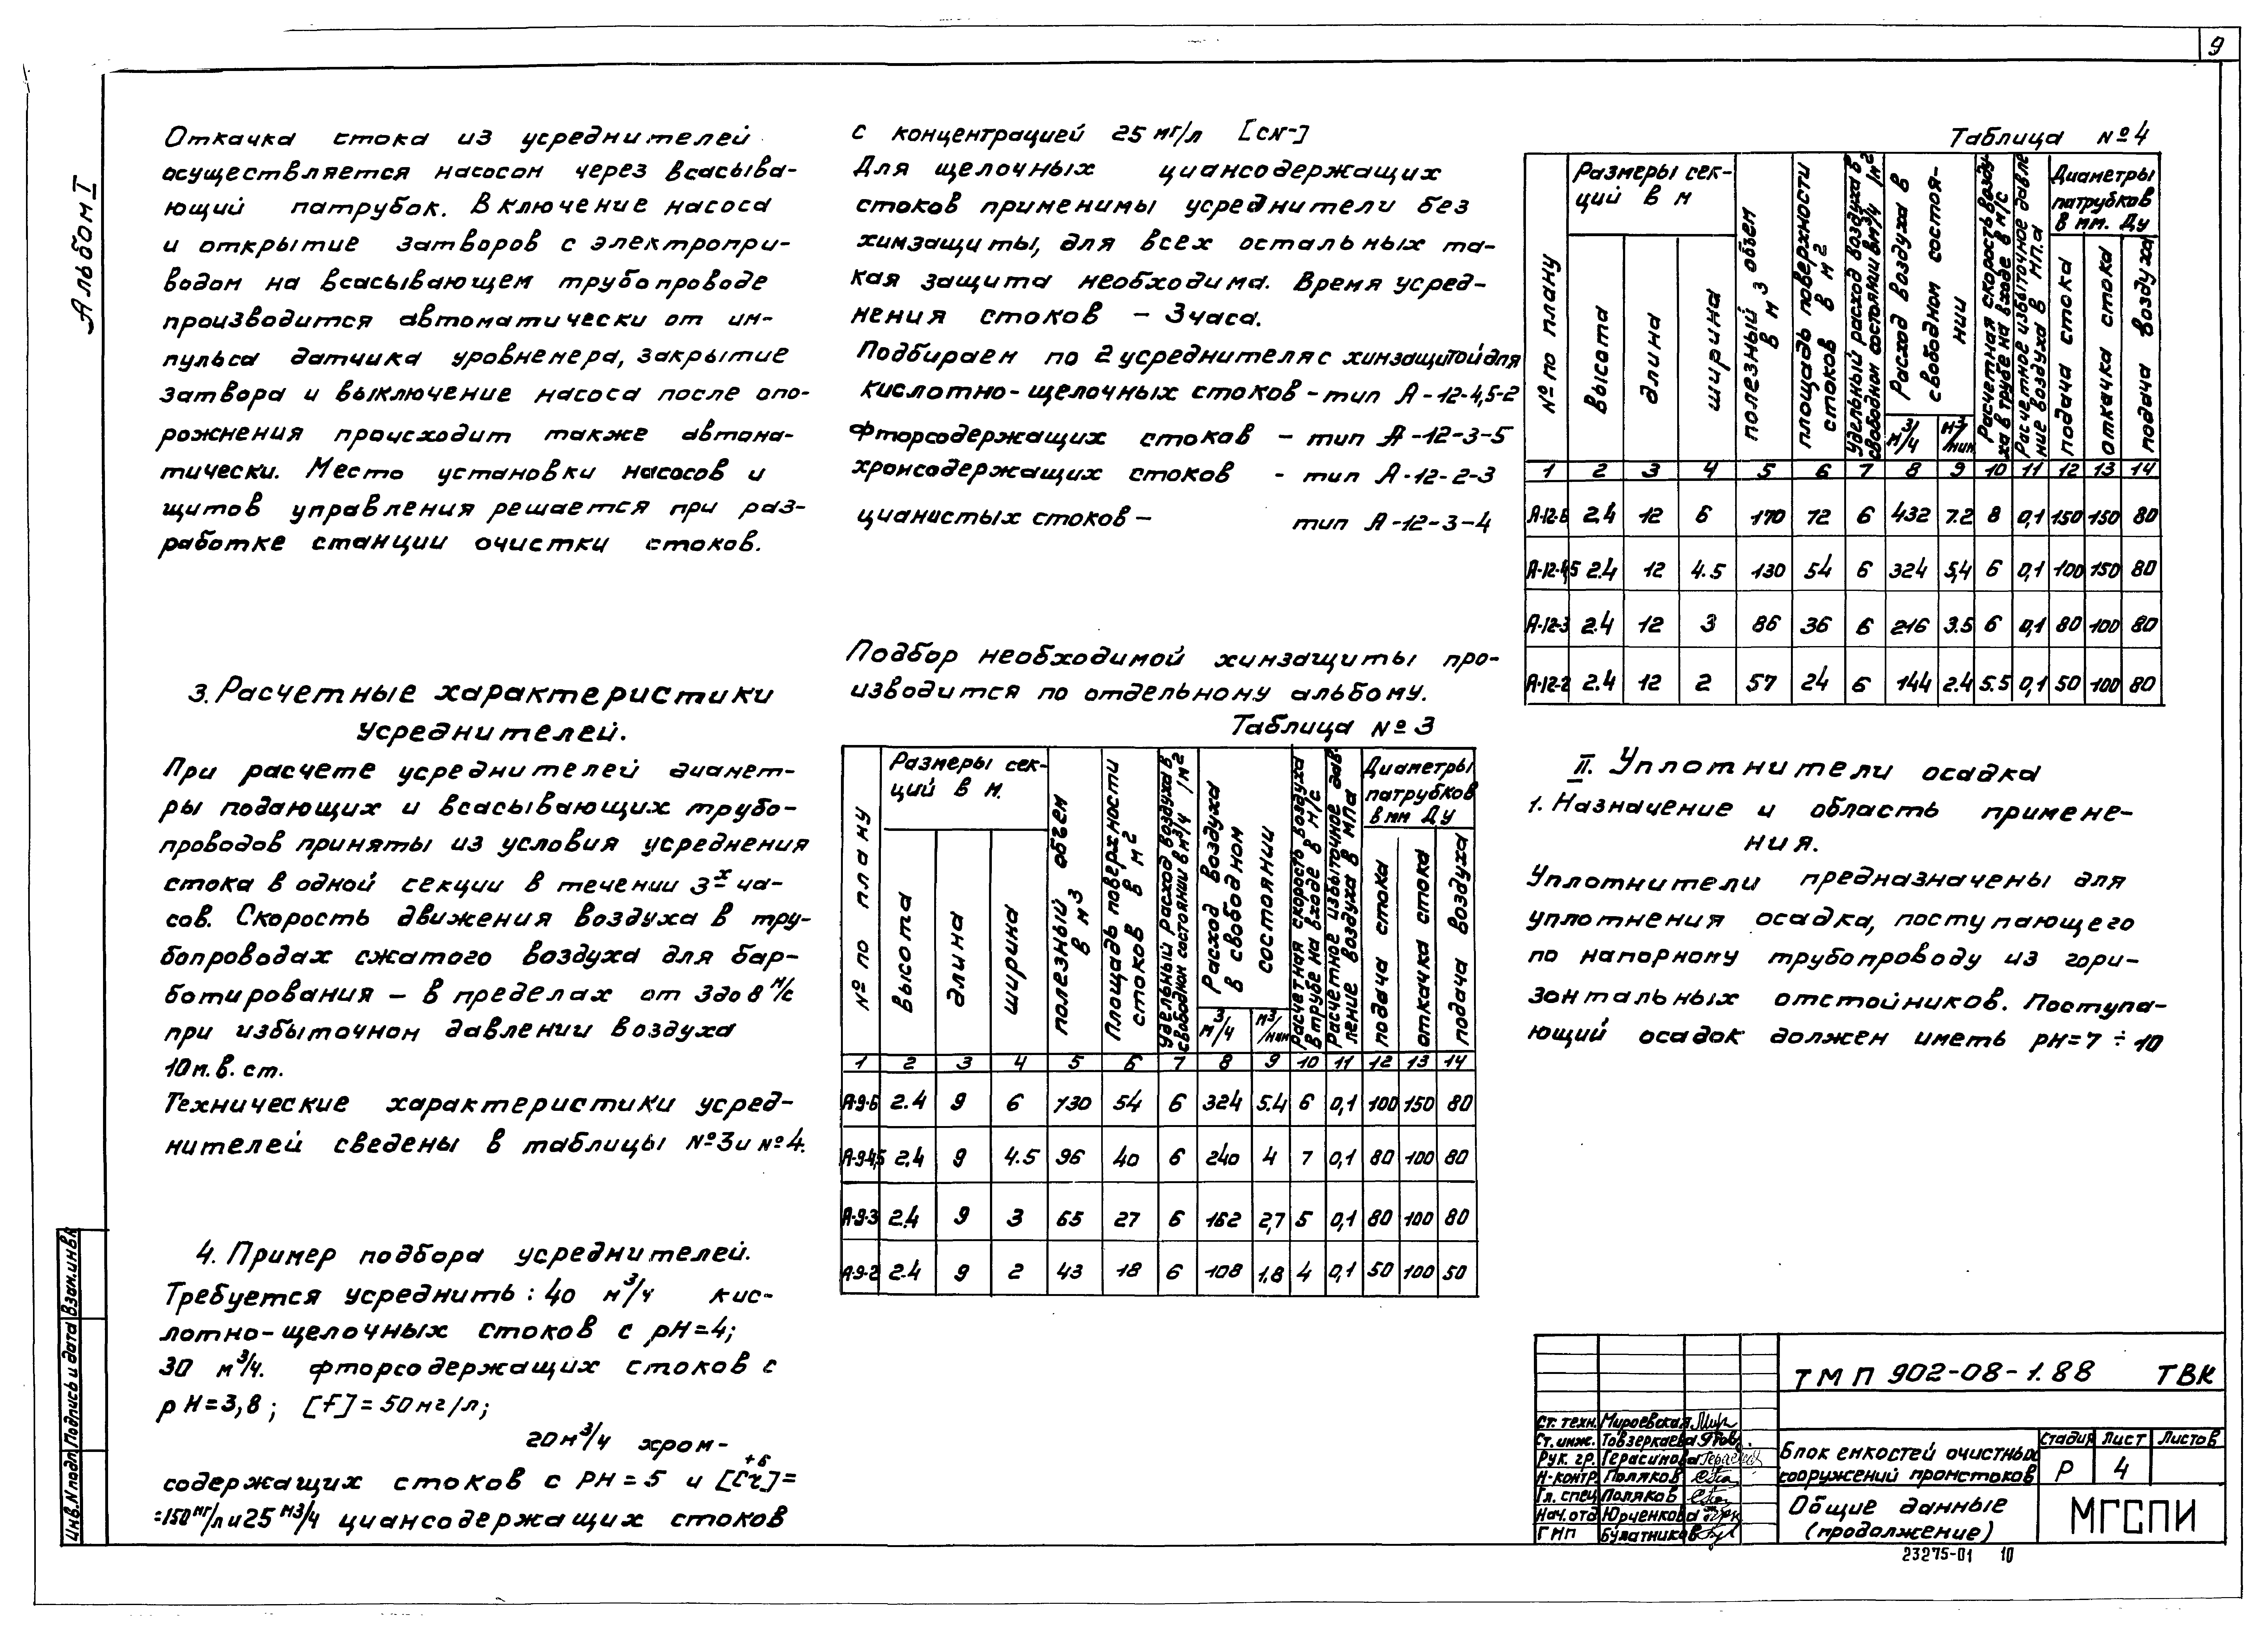 9
Альбом I
Откачка стока из усреднителей
осуществляется насосом через всасыва-
ющий патрубок. Включение насоса
и открытие затворов с электропри-
водом на всасывающем трубопроводе
производится автоматически от им-
пульса датчика уровнемера, закрытие
затвора и выключение насоса после опо-
рожнения происходит также автома-
тически. Место установки насосов и
щитов управления решается при раз-
работке станции очистки стоков.
3. Расчетные характеристики
усреднителей.
При расчете усреднителей диамет-
ры подающих и всасывающих трубо-
проводов приняты из условия усреднения
стока в одной секции в течении 3х ча-
сов. Скорость движения воздуха в тру-
бопроводах сжатого воздуха для бар-
ботирования – в пределах от 3 до 8 м/с
при избыточном давлении воздуха
10 м. в. ст.
Технические характеристики усред-
нителей сведены в таблицы №3 и №4.
4. Пример подбора усреднителей.
Требуется усреднить: 40 м³/ч кис-
лотно-щелочных стоков с pH=4;
30 м³/ч. фторсодержащих стоков с
pH=3,8; [f]=50мг/л;
20м³/ч хром-
содержащих стоков с PH=5 и [Cr+6]=
=150мг/л и 25 м3/ч циансодержащих стоков
с концентрацией 25 мг/л [CN-]
Для щелочных циансодержащих
стоков применимы усреднители без
химзащиты, для всех остальных та-
кая защита необходима. Время усред-
нения стоков – 3 часа.
Подбираем по 2 усреднителя с химзащитой для
кислотно-щелочных стоков – тип А-12-4,5-2
Фторсодержащих стоков – тип А-12-3-5
хромсодержащих стоков – тип А-12-2-3
цианистых стоков – тип А-12-3-4
Подбор необходимой химзащиты про-
изводится по отдельному альбому.
Таблица №3
№ по плану
Размеры сек-
ций в м.
высота
длина
ширина
полезный объем
в м³
Площадь поверхности
стоков в м²
Удельный расход воздуха в
свободном состоянии в м³/ч /м²
Расход воздуха
в свободном
состоянии
м³/ч
м³/мин
Расчетная скорость воздуха
в трубе на входе в м/с
Расчетное избыточное дав-
ление воздуха в МПа
Диаметры
патрубков
в мм Ду
подача стока
откачка стока
подача воздуха
1 2 3 4 5 6 7 8 9 10 11 12 13 14
А-9-6 2.4 9 6 130 54 6 324 5.4 6 0,1 100 150 80
А-9-4,5 2.4 9 4.5 96 40 6 240 4 7 0,1 80 100 80
А-9-3 2.4 9 3 65 27 6 162 2,7 5 0,1 80 100 80
А-9-2 2.4 9 2 43 18 6 108 1.8 4 0,1 50 100 50
Таблица №4
№ по плану
Размеры сек-
ций в м
высота
длина
ширина
полезный объем
в м³
площадь поверхности
стоков в м²
Удельный расход воздуха в
свободном состоянии в м³/ч /м²
Расход воздуха в
свободном состоя-
нии
м³/ч
м³/мин
Расчетная скорость возду-
ха в трубе на входе в м/с
Расчетное избыточное давле-
ние воздуха в МПа
Диаметры
патрубков
в мм. Ду
подача стока
откачка стока
подача воздуха
1 2 3 4 5 6 7 8 9 10 11 12 13 14
А-12-6 2.4 12 6 170 72 6 432 7.2 8 0,1 150 150 80
А-12-4,5 2.4 12 4.5 130 54 6 324 5,4 6 0,1 100 150 80
А-12-3 2.4 12 3 86 36 6 216 3.5 6 0,1 80 100 80
А-12-2 2.4 12 2 57 24 6 144 2.4 5.5 0,1 50 100 80
II. Уплотнители осадка
1. Назначение и область примене-
ния.
Уплотнители предназначены для
уплотнения осадка, поступающего
по напорному трубопроводу из гори-
зонтальных отстойников. Поступа-
ющий осадок должен иметь pH=7÷10
Инв.N подл Подпись и дата Взам.инв.N
Ст. техн. Мироевская
Ст. инж. Товзеркаева
Рук. гр. Герасимова
Н-контр Поляков
Гл. спец Поляков
Нач. отд Юрченкова
ГИП Булатников
ТМП 902-08-1.88 ТВК
Блок емкостей очистных
сооружений промстоков
Стадия Лист Листов
Р 4
Общие данные
(продолжение)
МГСПИ
23275-01 10